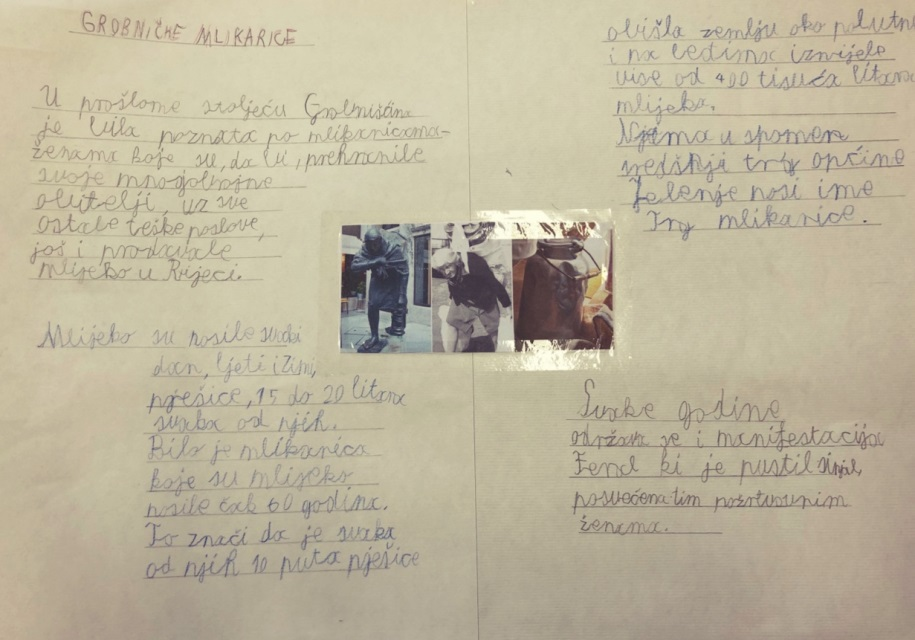 GROBNIČKE MLIKARICE
U prošlome stoljeću Grobnišćina
je bila poznata po mlikaricama-
ženama koje su, da bi, prehranile
svoje mnogobrojne
obitelji, uz sve
ostale teške poslove,
još i prodavale
mlijeko u Rijeci.
Mlijeko su nosile svaki
dan, ljeti i zimi,
pješice, 15 do 20 litara
svaka od njih.
Bilo je mlikarica
koje su mlijeko
nosile čak 60 godina.
To znači da je svaka
od njih 10 puta pješice
obišla zemlju oko polutn
i na leđima iznijele
više od 400 tisuća litara
mlijeka.
Njima u spomen
središnji trg općine
Jelenje nosi ime
Trg mlikarice.
Svake godine
održava se i manifestacija
Fend ki je pustil
posvećena tim požrtvovnim
ženama.